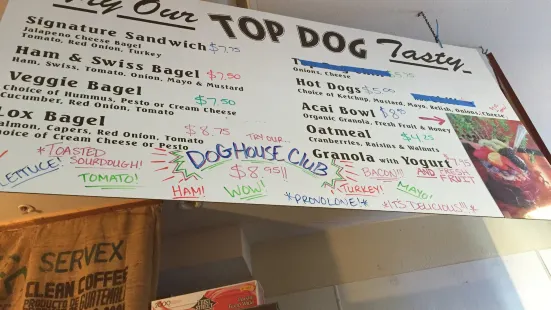 Try Our TOP DOG Tasty
Signature Sandwich $7.75
Jalapeno Cheese Bagel
Tomato, Red Onion, Turkey
Ham & Swiss Bagel $7.50
Ham, Swiss, Tomato, Onion, Mayo & Mustard
Veggie Bagel $7.50
Choice of Hummus, Pesto or Cream Cheese
Cucumber, Red Onion, Tomato
Lox Bagel $8.75
Salmon, Capers, Red Onion, Tomato
Choice of Cream Cheese or Pesto
Onions, Cheese
Hot Dogs
Choice of Ketchup, Mustard, Mayo, Relish, Onions, Cheese
Acai Bowl
Organic Granola, Fresh Fruit & Honey
Oatmeal $4.25
Cranberries, Raisins & Walnuts
Granola with Yogurt
AND FRESH
FRUIT
TRY OUR...
DOGHOUSE CLUB
$8.95!!
LETTUCE!
*TOASTED
SOURDOUGH!
TOMATO!
HAM!
WOW!
*PROVOLONE!*
TURKEY!
BACON!!!
MAYO!
*IT'S DELICIOUS!!!*
SERVEX
CLEAN COFFEE
PRODUCTO DE GUATEMALA